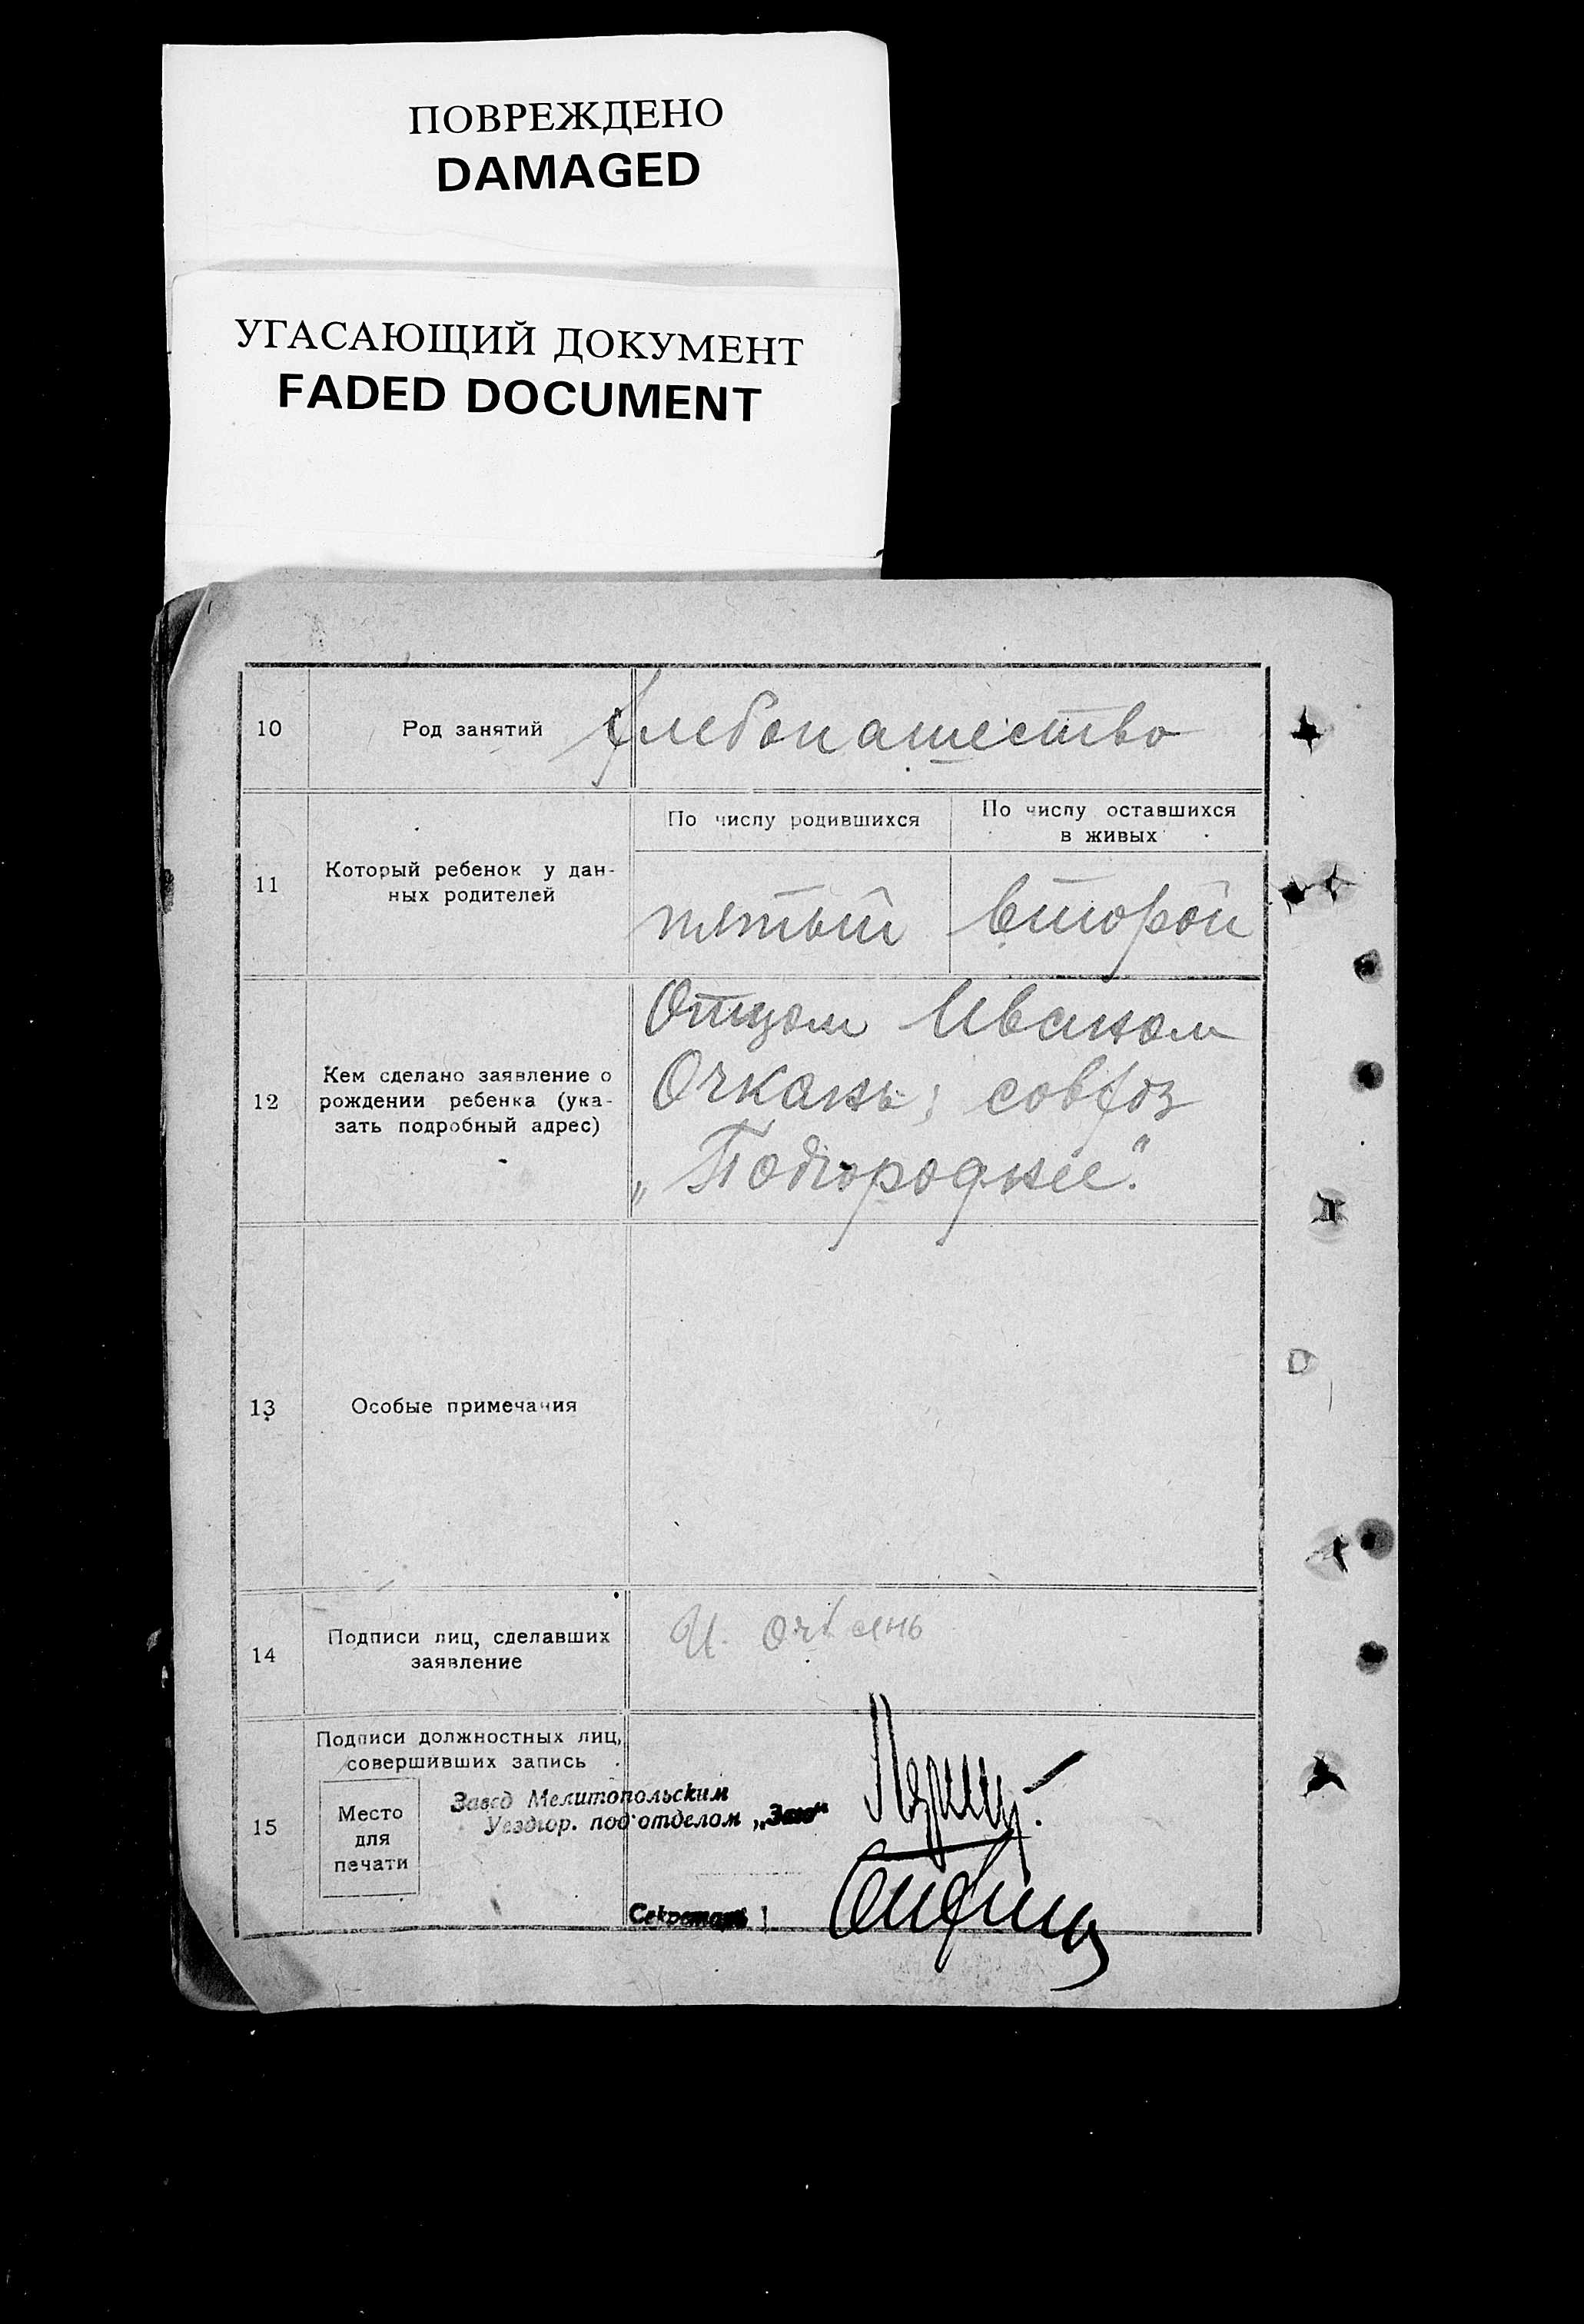 ПОВРЕЖДЕНО
DAMAGED
УГАСАЮЩИЙ ДОКУМЕНТ
FADED DOCUMENT
10
Род занятий
Хлебопашество
11
Который ребенок у дан-
ных родителей
По числу родившихся
По числу оставшихся
в живых
пятый
второй
12
Кем сделано заявление о
рождении ребенка (ука-
зать подробный адрес)
Отцом Иваном
Очкань; совхоз
„Подгороднее".
13
Особые примечания
14
Подписи лиц, сделавших
заявление
И. Очкань
15
Подписи должностных лиц,
совершивших запись
Место
для
печати
Завед Мелитопольским
Уездгор. под'отделом „Загс"
Секретарь